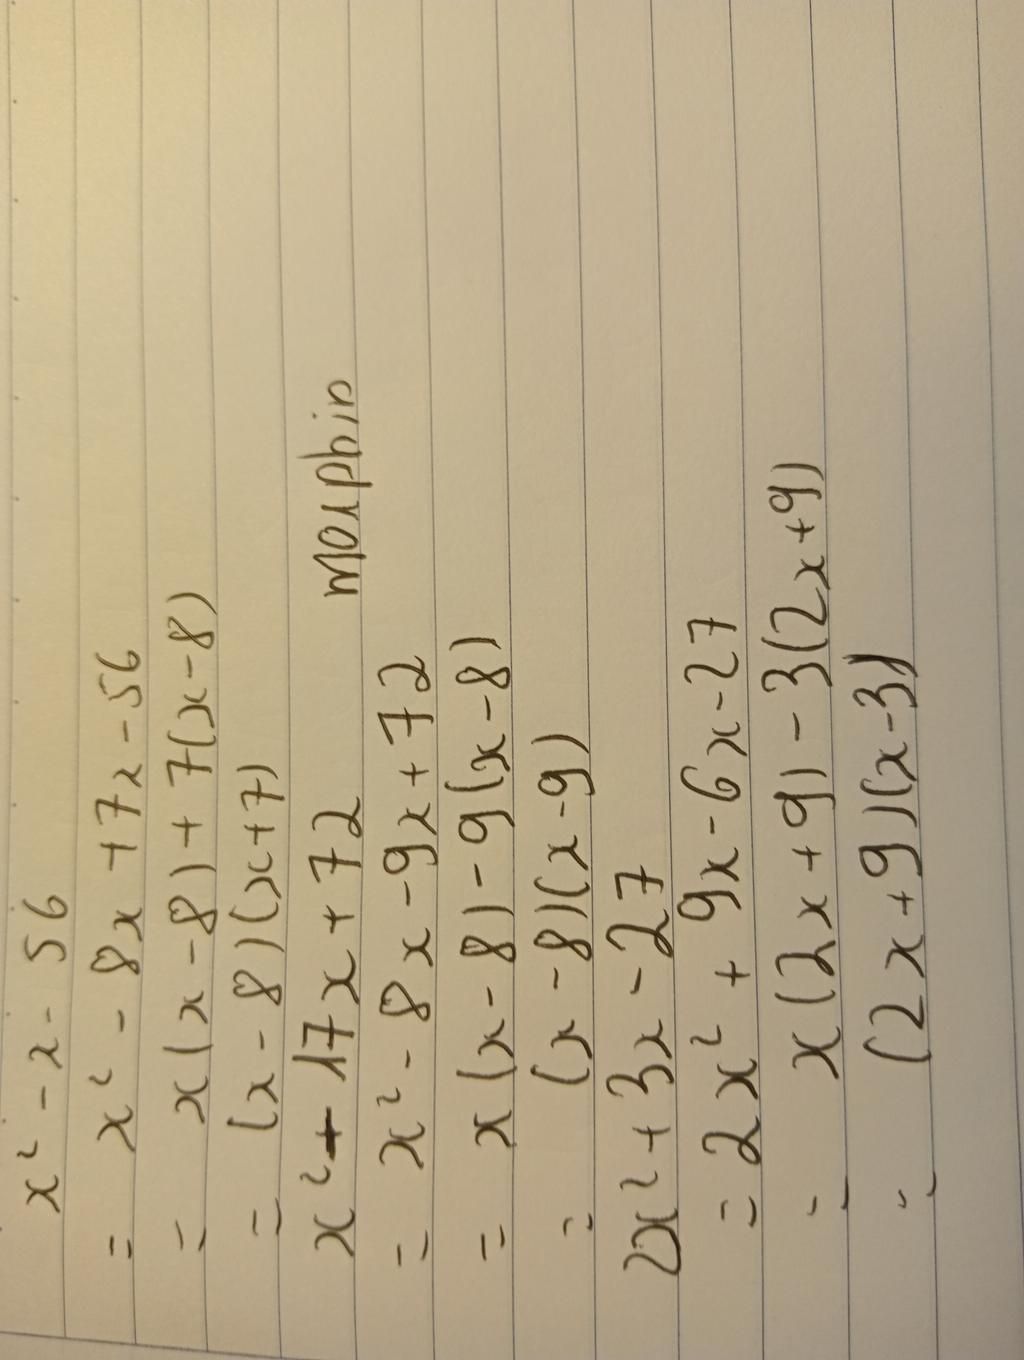 x² - x - 56
= x² - 8x + 7x - 56
= x(x - 8) + 7(x - 8)
= (x - 8)(x + 7)
x² - 17x + 72 morphin
= x² - 8x - 9x + 72
= x(x - 8) - 9(x - 8)
= (x - 8)(x - 9)
2x² + 3x - 27
= 2x² + 9x - 6x - 27
= x(2x + 9) - 3(2x + 9)
= (2x + 9)(x - 3)